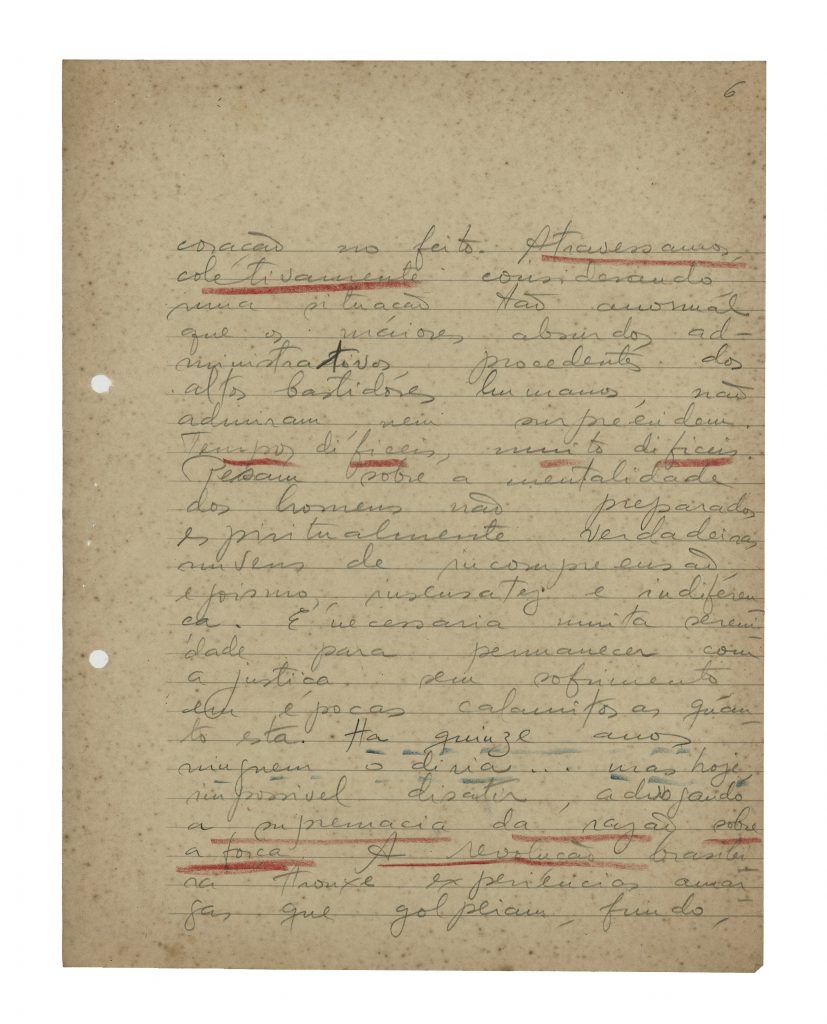 6
coração no feito. Atravessamos,
coletivamente considerando
uma situação tão anormal
que os maiores absurdos ad-
ministrativos procedentes dos
altos bastidores humanos, não
admiram nem surpreendem.
Tempos difíceis, muito difíceis.
Pesam sobre a mentalidade
dos homens não preparados
espiritualmente verdadeiras
nuvens de incompreensão
egoismo, insensatez e indiferen
ça. É necessaria muita sereni
dade para permanecer com
a justiça sem sofrimento
em épocas calamitosas quan
to esta. Ha quinze anos
ninguem o diria... mas hoje,
impossivel discutir, advogando
a supremacia da razão sobre
a força. A revolução brasilei
ra trouxe experiencias amar
gas que golpeiam, fundo,